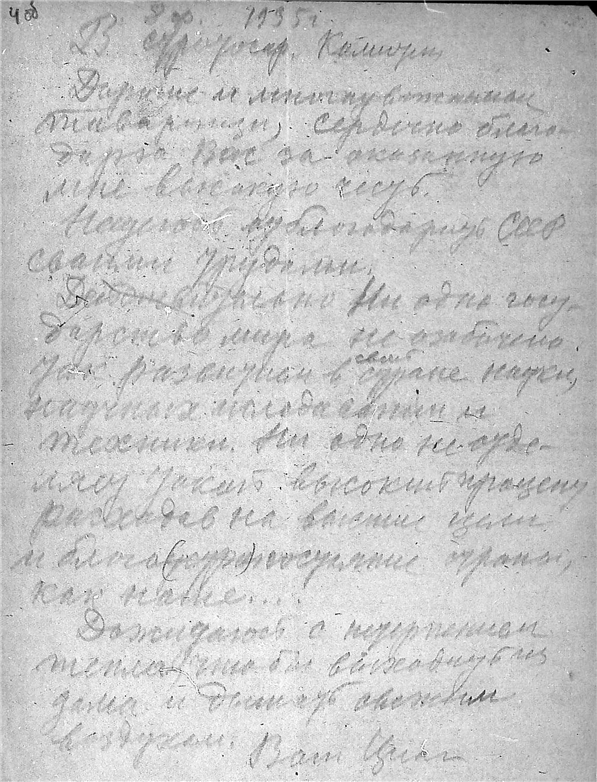 4 об
8 ф. 1935 г.
В стратосф. Комит.
Дорогие и многоуважаемые
товарищи, сердечно благо-
дарю Вас за оказанную
мне высокую честь.
Надеюсь отблагодарить СССР
своими трудами.
Действительно Ни одно госу-
дарство мира не озабочено
так развитием в своей стране науки,
научных и
техники. Ни одно не отде-
ляет такой высокий процент
расходов на высшие цели
и благо страны,
как наше....
Дожидаюсь с нетерпением
тепла, чтобы выходить из
дома и дышать свежим
воздухом.
Ваш Циол